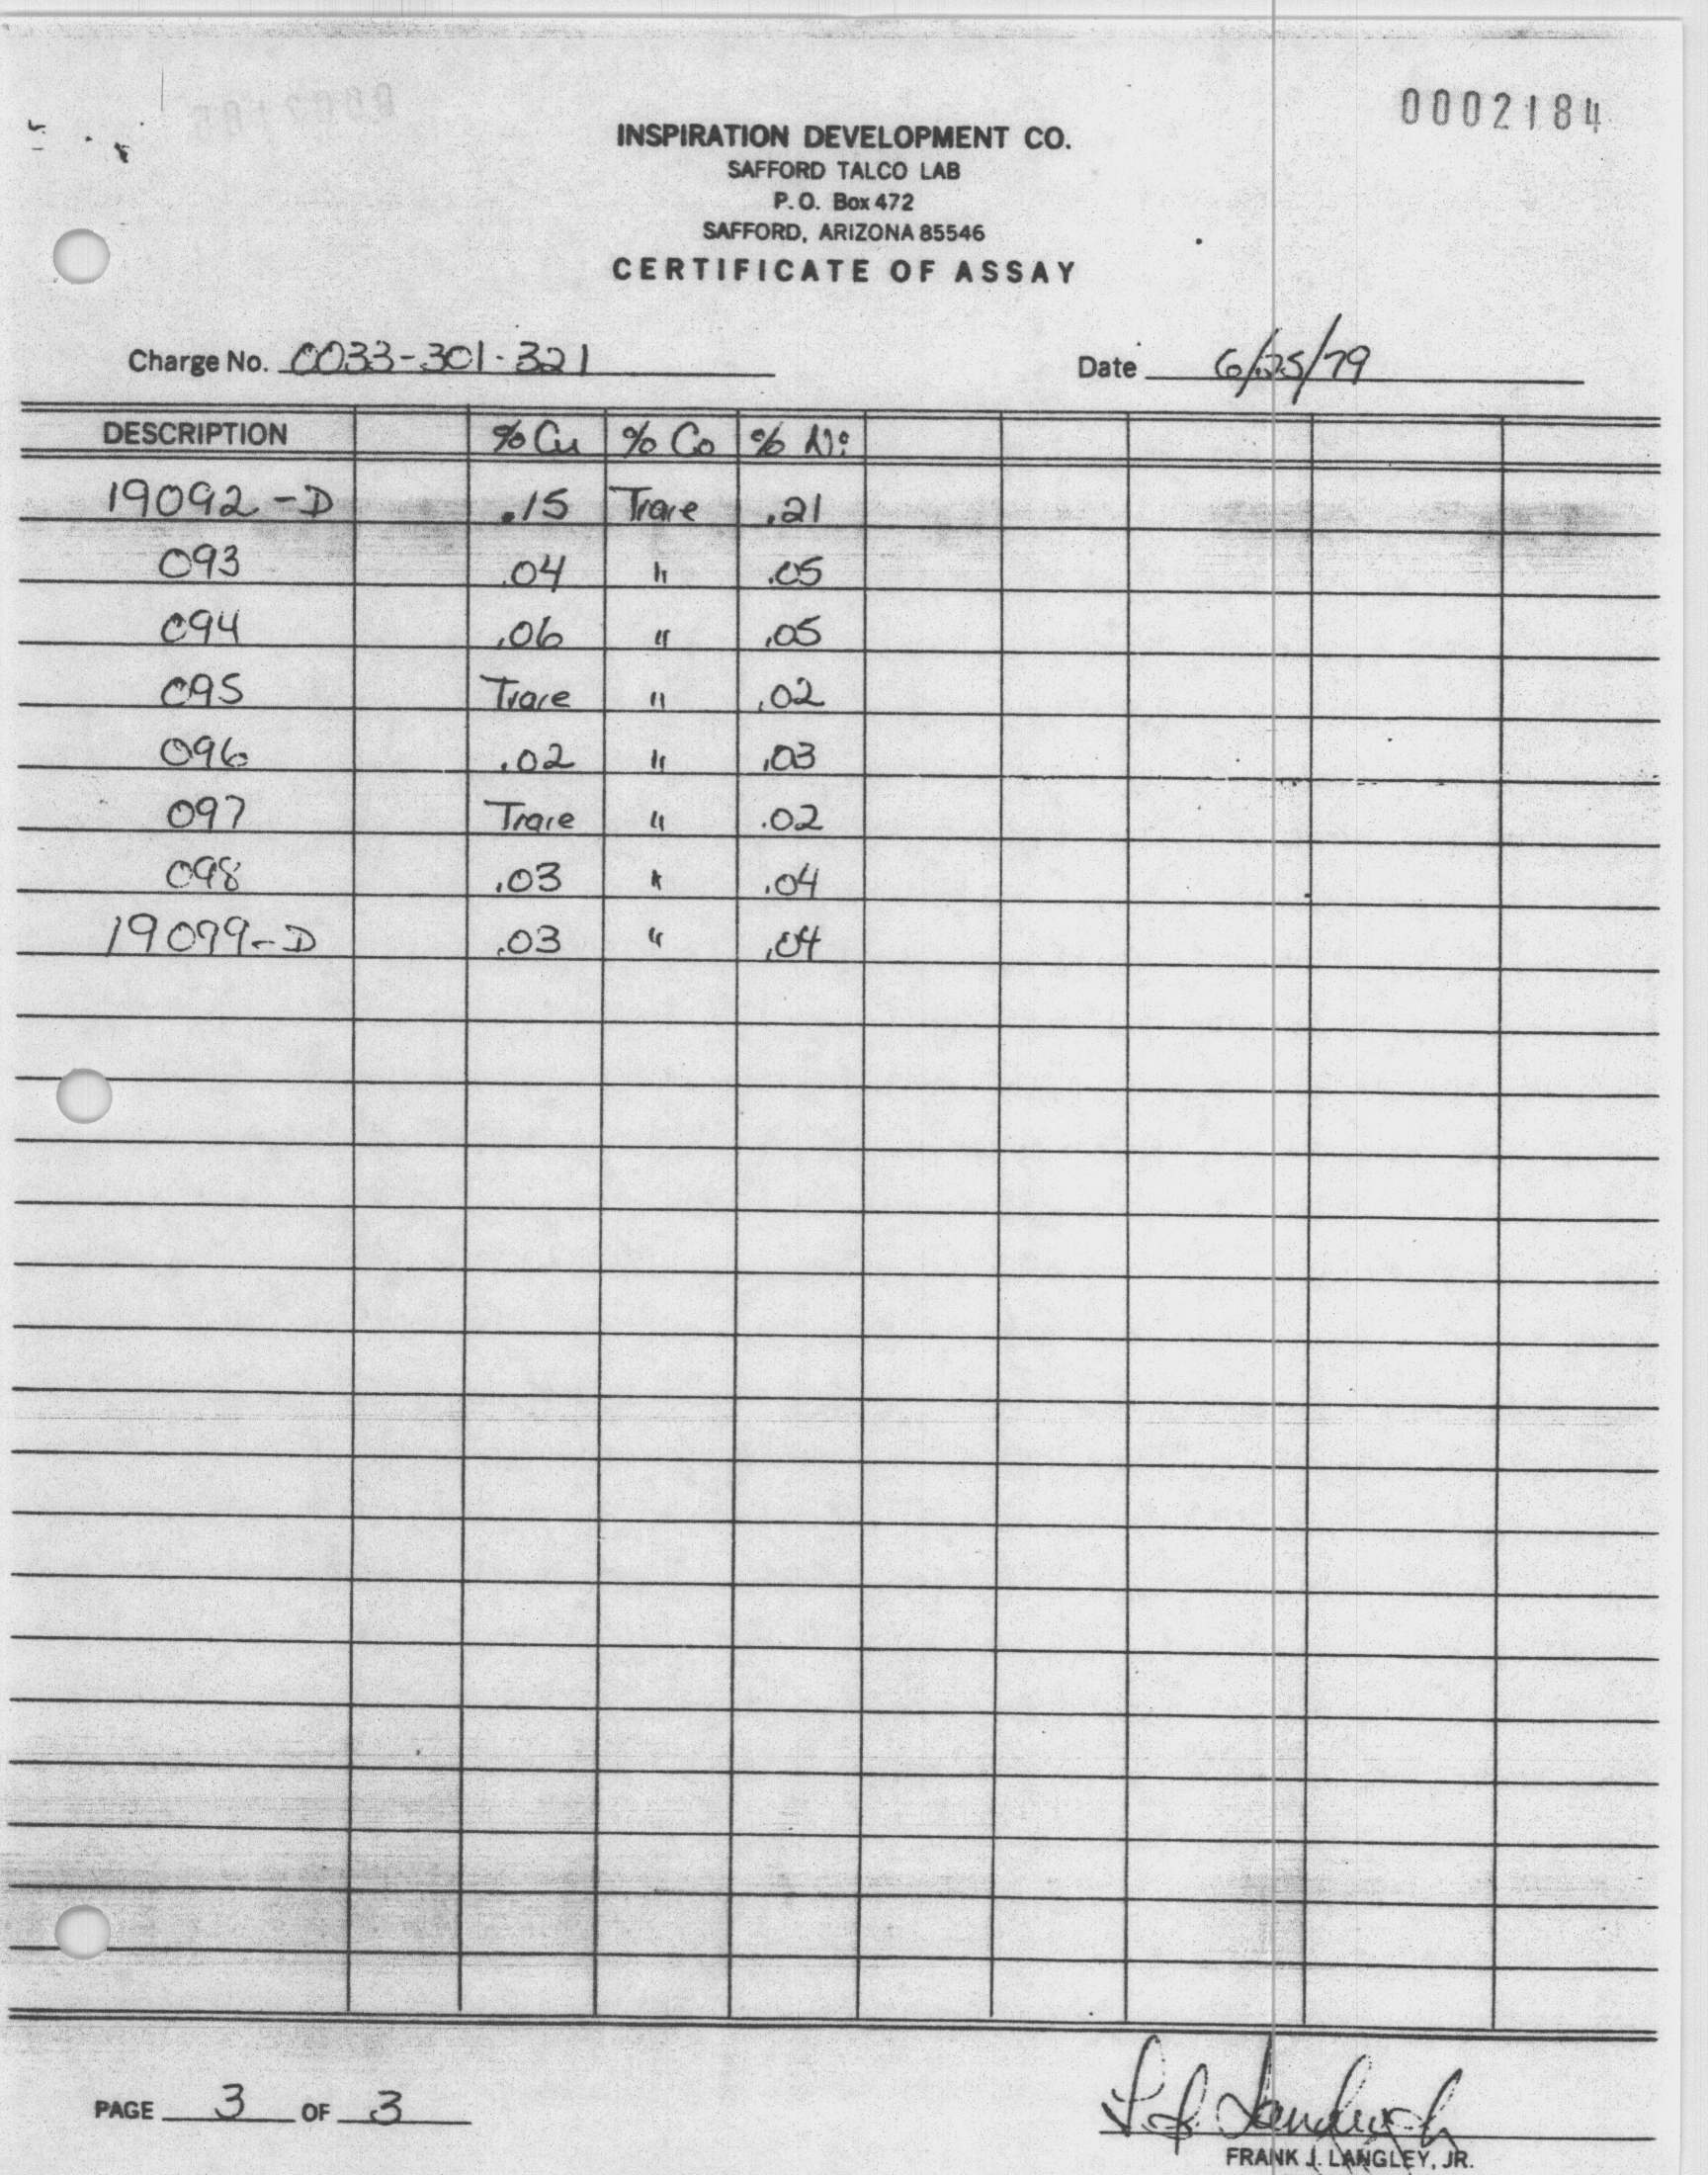 0002184
INSPIRATION DEVELOPMENT CO.
SAFFORD TALCO LAB
P.O. Box 472
SAFFORD, ARIZONA 85546
CERTIFICATE OF ASSAY
Charge No. 0033-301-321 Date 6/25/79
DESCRIPTION % Cu % Co % Ni
19092-D .15 Trace .21
093 .04 " .05
094 .06 " .05
095 Trace " .02
096 .02 " .03
097 Trace " .02
098 .03 " .04
19099-D .03 " .04
PAGE 3 OF 3
FRANK J. LANGLEY, JR.